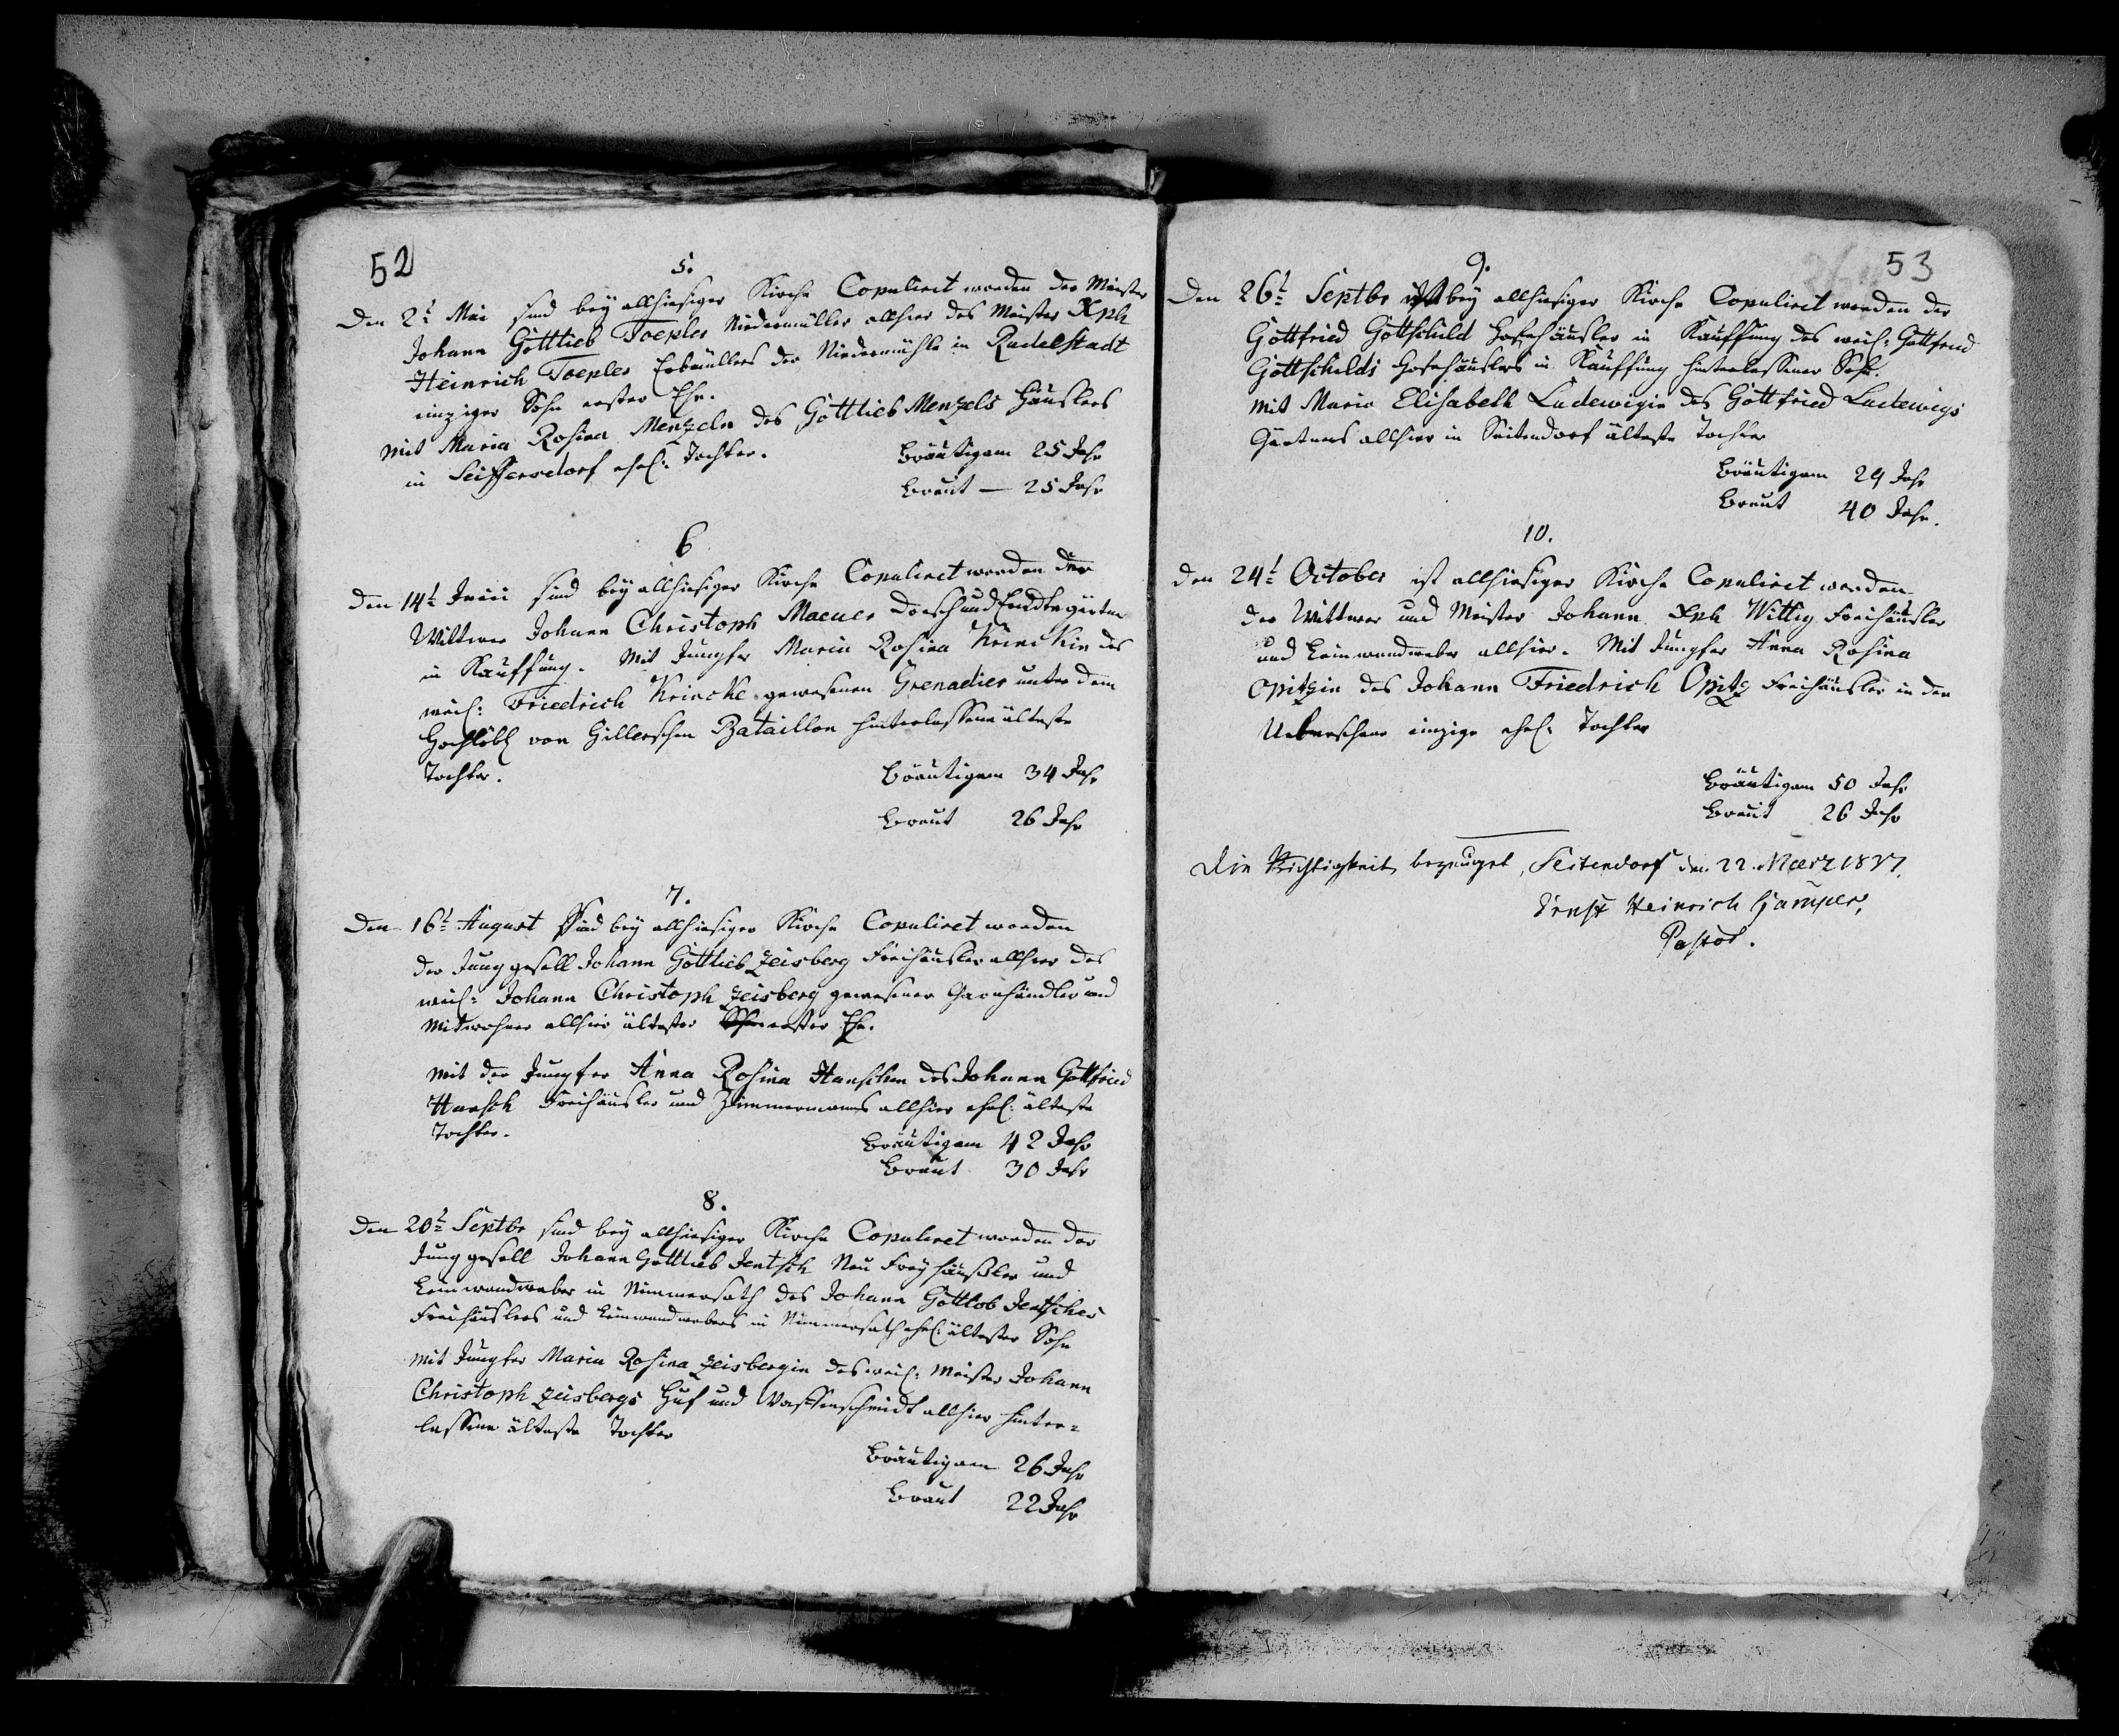 52
5.
Den 2t Mai sind bey allhiesiger Kirche Copuliret worden der Meister
Johann Gottlieb Toepler Niedermüller allhier des Meister Xph
Heinrich Toepler Erbmüllers der Niedermühle in Rudelstadt
einziger Sohn erster Ehe.
Mit Maria Rosina Menzeln des Gottlieb Menzels Häuslers
in Seiffersdorf ehel: Tochter.
Bräutigam 25 Jahr
Braut — 25 Jahr
6
Den 14t Junii sind bey allhiesiger Kirche Copuliret worden der
Wittwer Johann Christoph Maeuer Dreschgärtner
in Kauffung. Mit Jungfer Maria Rosina Reinckin des
weil: Friedrich Reincke gewesenen Grenadier unter dem
Hochlöbl von Hillerschen Bataillon hinterlassene älteste
Tochter.
Bräutigam 34 Jahr
Braut 26 Jahr
7.
Den 16t August Sind bey allhiesiger Kirche Copuliret worden
der Junggesell Johann Gottlieb Zeisberg Freihäusler allhier des
weil: Johann Christoph Zeisberg gewesener Garnhändler und
Mitwohner allhier ältester Sohn erster Ehe.
Mit der Jungfer Anna Rosina Hanschen des Johann Gottfried
Hansch Freihäusler und Zimmermanns allhier ehel: älteste
Tochter.
Bräutigam 42 Jahr
Braut 30 Jahr
8.
Den 20t Septbr sind bey allhiesiger Kirche Copuliret worden der
Junggesell Johann Gottlieb Jentsch Neu Freyhäußler und
Leinwandweber in Nimmersath des Johann Gottlob Jentsches
Freihäuslers und Leinwandwebers in Nimmersath ehel: ältester Sohn
Mit Jungfer Maria Rosina Zeisbergin des weil: Meister Johann
Christoph Zeisbergs Huf und Waffenschmidt allhier hinter=
lassene älteste Tochter
Bräutigam 26 Jahr
Braut 22 Jahr
53
9.
Den 26t Septbr ist bey allhiesiger Kirche Copuliret worden der
Gottfried Gottschild Hofehäusler in Kauffung des weil: Gottfried
Gottschilds Hofehäuslers in Kauffung hinterlassener Sohn.
Mit Maria Elisabeth Ludewigin des Gottfried Ludewigs
Gärtners allhier in Seitendorf älteste Tochter
Bräutigam 24 Jahr
Braut 40 Jahr.
10.
Den 24t October ist allhiesiger Kirche Copuliret worden
der Wittwer und Meister Johann Xph Wittig Freihäusler
und Leinwandweber allhier. Mit Jungfer Anna Rosina
Opitzin des Johann Friedrich Opitz Freihäusler in der
Ueberschaar einzige ehel: Tochter
Bräutigam 50 Jahr
Braut 26 Jahr
Die Richtigkeit bezeuget, Seitendorf den 22. Maerz 1837.
Ernst Heinrich Gamper,
Pastor.